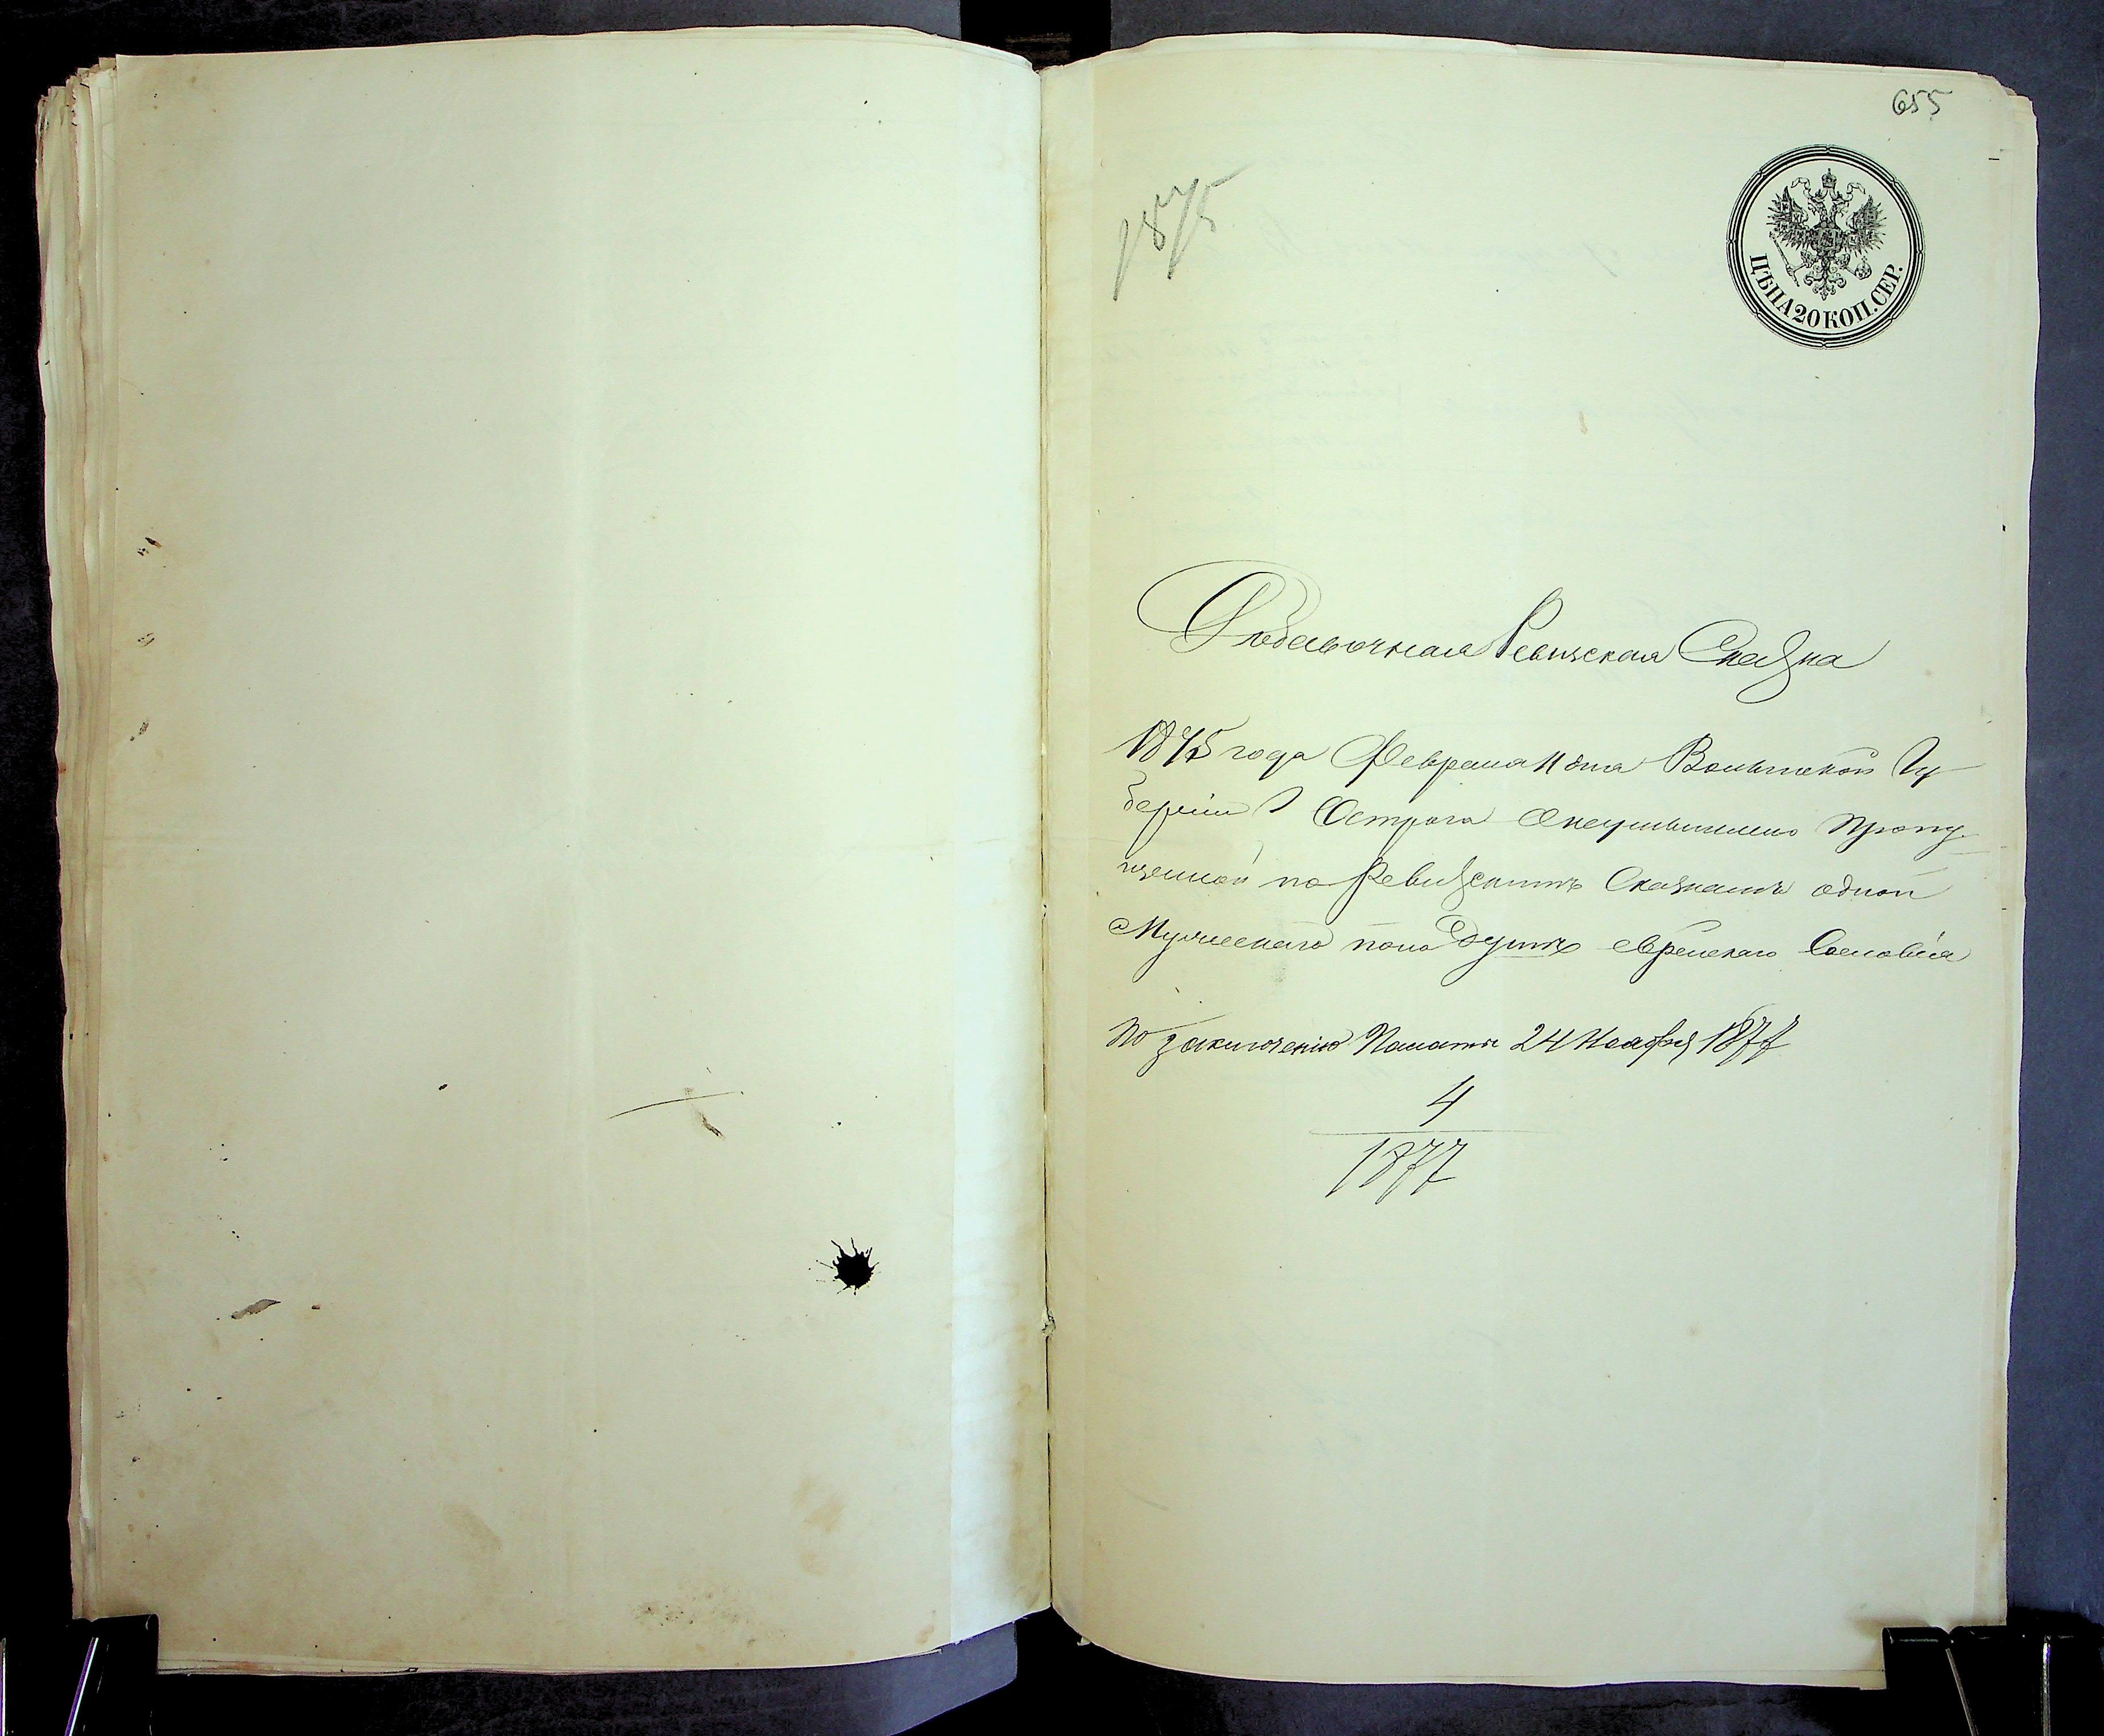 655
1875
ЦѢНА 20 КОП. СЕР.
Добавочная Ревизская Сказка
1875 года Февраля 11 дня Волынской Гу-
берніи Г Острога о неумышленно пропу-
щенной по Ревизскимъ Сказкамъ одной
Мужескаго пола Душѣ еврейскаго Сословія
По заключенію Палаты 24 Ноября 1877
4
1877